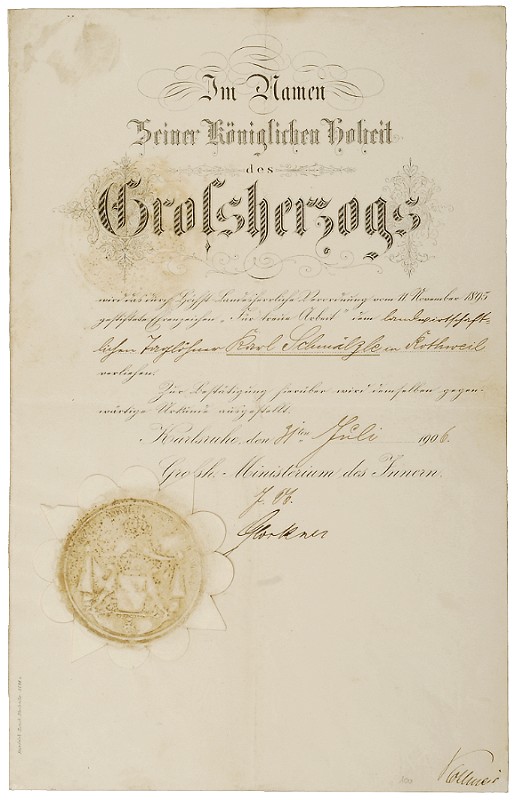 Im Namen
Seiner Königlichen Hoheit
des
Grofsherzogs
wird das durch Höchst Landesherrliche Verordnung vom 11 November 1895
gestiftete Ehrenzeichen „Für treue Arbeit" dem landwirtschaft-
lichen Taglöhner Karl Schmälzle in Rothweil
verliehen.
Zur Bestätigung hierüber wird demselben gegen-
wärtige Urkunde ausgestellt.
Karlsruhe, den 31ten Juli 1906.
Grofsh. Ministerium des Innern.
J. V.
Glockner